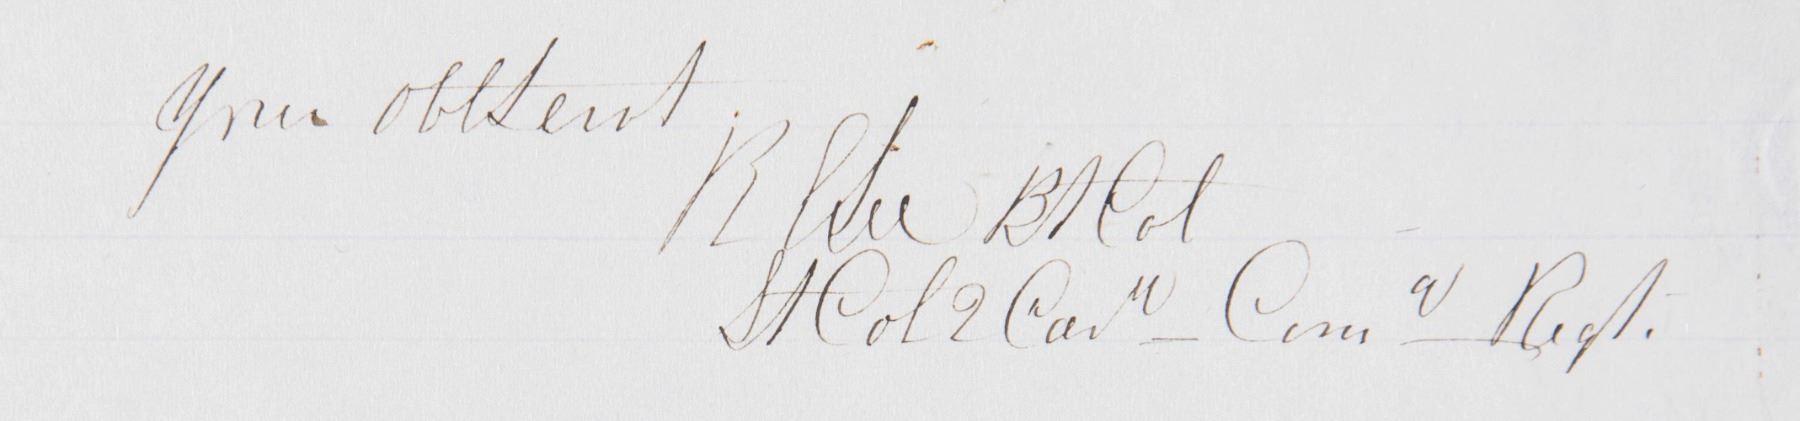 Your obt Servt
R E Lee Bt Col
Lt Col 2 Cavy - Comd Regt.